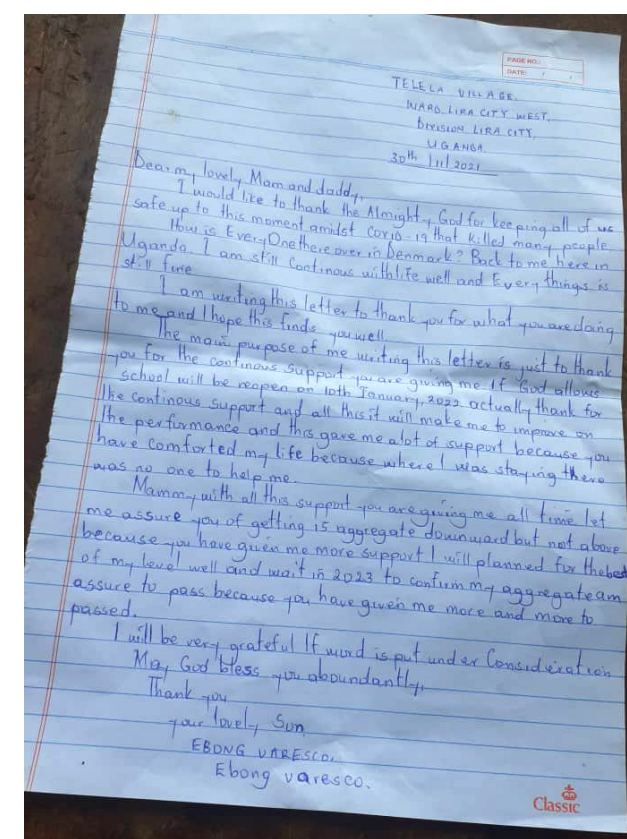 PAGE NO.:
DATE: / /
TELELA VILLAGE.
WARD LIRA CITY WEST,
DIVISION LIRA CITY,
UGANDA.
30th /11/2021
Dear my lovely Mam and daddy,
I would like to thank the Almighty God for keeping all of us
safe up to this moment amidst Covid-19 that killed many people
How is Every One there over in Denmark? Back to me here in
Uganda I am still Continous with life well and Every things is
still fine
I am writing this letter to thank you for what you are doing
to me and I hope this finds you well
The main purpose of me writing this letter is just to thank
you for the continous support you are giving me If God allows
school will be reopen on 10th January, 2022 actually thank for
the continous support and all this it will make me to improve on
the performance and this gave me alot of support because you
have comforted my life because where I was staying there
was no one to help me
Mammy with all this support you are giving me all time let
me assure you of getting 15 aggregate downward but not above
because you have given me more support I will planned for the best
of my level well and wait in 2023 to confirm my aggregate am
assure to pass because you have given me more and more to
passed.
I will be very grateful If word is put under Consideration
May God bless you aboundantly,
Thank you
your lovely Sun,
EBONG VARESCO.
Ebong varesco.
Classic